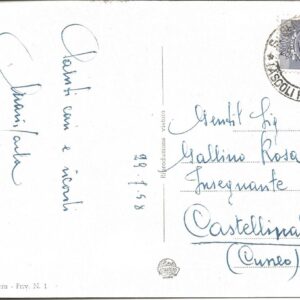 Saluti cari e ricordi
29.1.58
Riproduzione vietata
Gentil Sig
Gallino Rosa
Insegnante
Castellina
(Cuneo)
ASCOLI P
Priv. N. 1